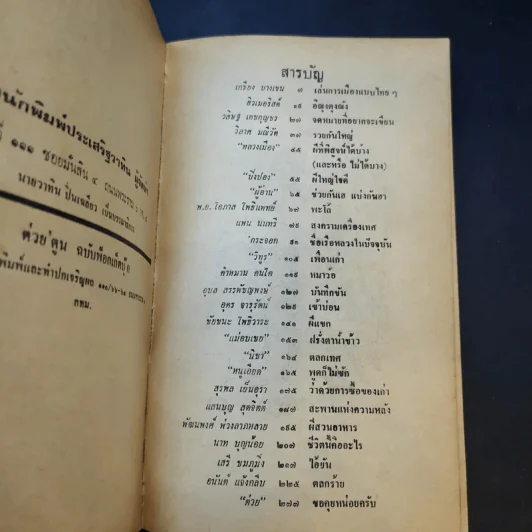 นักพิมพ์ประเสริฐวาทิน
๑๑๑ ซอยมันสิน ๔
นายวาทิน ปิ่นเฉลียว เป็นบรรณาธิการ
ต่วย'ตูน ฉบับพ็อกเก็ตบุ๊ค
กทม.
สารบัญ
เกรียง บางเขน ๗ เล่นการเมืองแบบไทย ๆ
ฮิวเมอริสต์ ๑๙ อีฉุงตุงฉัง
วสิษฐ เดชกุญชร ๒๗ จดหมายที่อยากจะเขียน
วิลาศ มณีวัต ๓๗ รวยกันใหญ่
"หลวงเมือง" ๔๕ ผีที่พิสูจน์ได้บ้าง
(และหรือ ไม่ได้บ้าง)
"ยิ่งปอง" ๕๕ ผีใหญ่ใจดี
"ผู้อ่าน" ๖๕ ช่วยกันเฮ แบ่งกันฮา
พ.อ. โอภาส โพธิแพทย์ ๖๗ พะโล้
แพน นนทรี ๗๕ สงครามเครื่องเทศ
"กระจอก ๙๑ ชื่อเรือหลวงในปัจจุบัน
"วิยูร" ๑๐๕ เพื่อนเก่า
คำหมาน คนไค ๑๑๙ หมาวัด
อุบล สารพัชญพงษ์ ๑๒๗ บันทึกขัน
อุดร จารุรัตน์ ๑๒๙ เข้าบ่อน
ชัยชนะ โพธิวาระ ๑๔๑ ผีแขก
"แม่อบเชย" ๑๕๓ ฝรั่งตาน้ำข้าว
"นิชา" ๑๖๔ ตลกเทศ
"หนูเอียด" ๑๖๕ พูดก็ไม่ซัก
สุรพล เย็นอุรา ๑๗๕ ว่าด้วยการซื้อของเก่า
แถนบุญ สุดจิตต์ ๑๘๗ สะพานแห่งความหลัง
พัฒนพงศ์ พ่วงลาภหลาย ๑๙๕ ผีสวนอาหาร
นาท บุญน้อย ๒๐๗ ชีวิตนี้คืออะไร
เสรี ชมภูมิ่ง ๒๑๗ ไอ้ยัน
อนันต์ แจ้งกลีบ ๒๒๕ ตลกร้าย
"ต่วย" ๒๗๗ ขอคุยหน่อยครับ